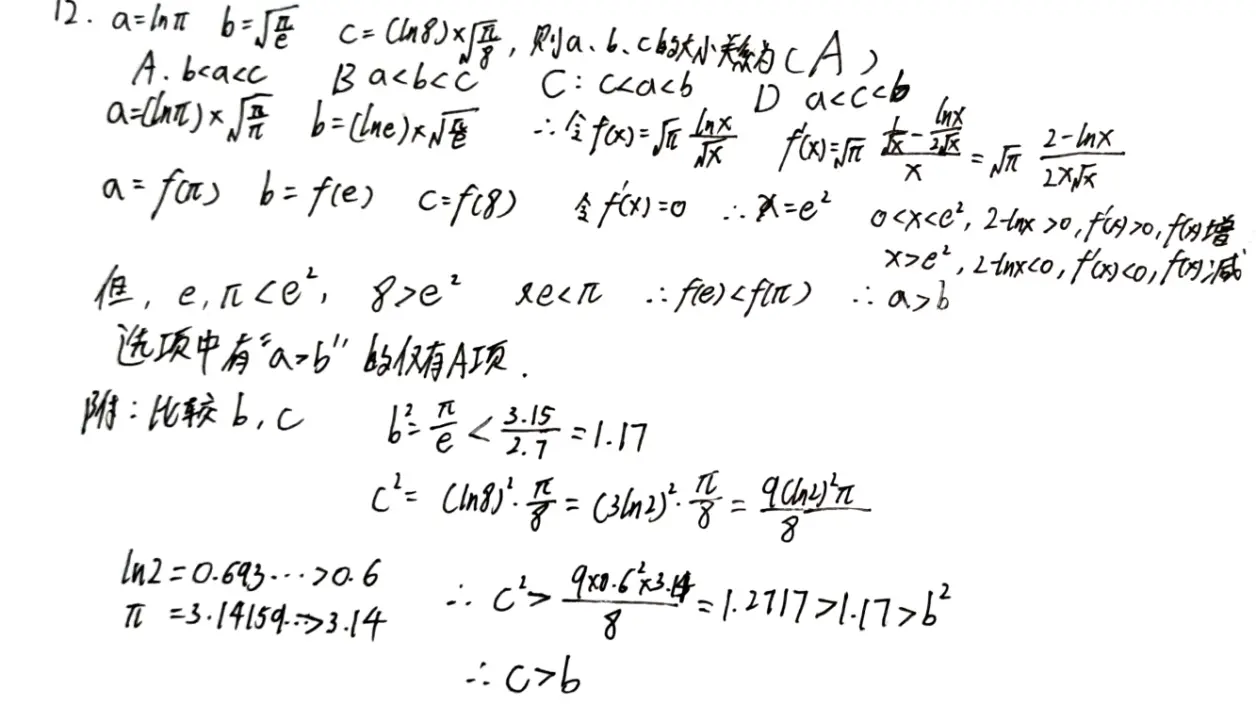 12. a=lnπ b=√(π/e) c=(ln8)×√(π/8), 则a、b、c的大小关系为(A)
A. b<a<c B a<b<c C: c<a<b D a<c<b
a=(lnπ)×√(π/π) b=(lne)×√(π/e) ∴令f(x)=√π lnx/√x f'(x)=√π (1/√x - lnx/2√x)/x = √π (2-lnx)/(2x√x)
a=f(π) b=f(e) c=f(8) 令f'(x)=0 ∴x=e² 0<x<e², 2-lnx>0, f'(x)>0, f(x)增
x>e², 2-lnx<0, f'(x)<0, f(x)减
但, e, π<e², 8>e² 又e<π ∴f(e)<f(π) ∴a>b
选项中有"a>b"的仅有A项.
附:比较b, c b²=π/e<3.15/2.7=1.17
c²=(ln8)²·π/8=(3ln2)²·π/8=9(ln2)²π/8
ln2=0.693…>0.6
π=3.14159…>3.14
∴c²>9×0.6²×3.14/8=1.2717>1.17>b²
∴c>b